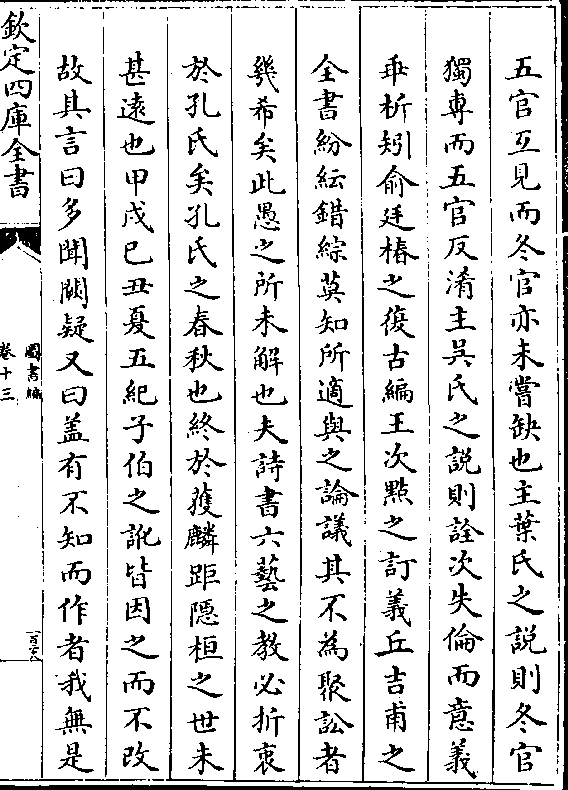 五官互見而冬官亦未嘗缺也主葉氏之説則冬官
獨專而五官反淆主吳氏之説則詮次失倫而意義
乖析矧俞廷椿之復古編王次㸃之訂義丘吉甫之
全書紛紜錯綜莫知所適與之論議其不為聚訟者
幾希矣此愚之所未解也夫詩書六藝之教必折衷
於孔氏矣孔氏之春秋也終於獲麟距隱桓之世未
甚遠也甲戌巳丑夏五紀子伯之訛皆因之而不改
故其言曰多聞闕疑又曰盖有不知而作者我無是
欽定四庫全書
圖書編
卷十三